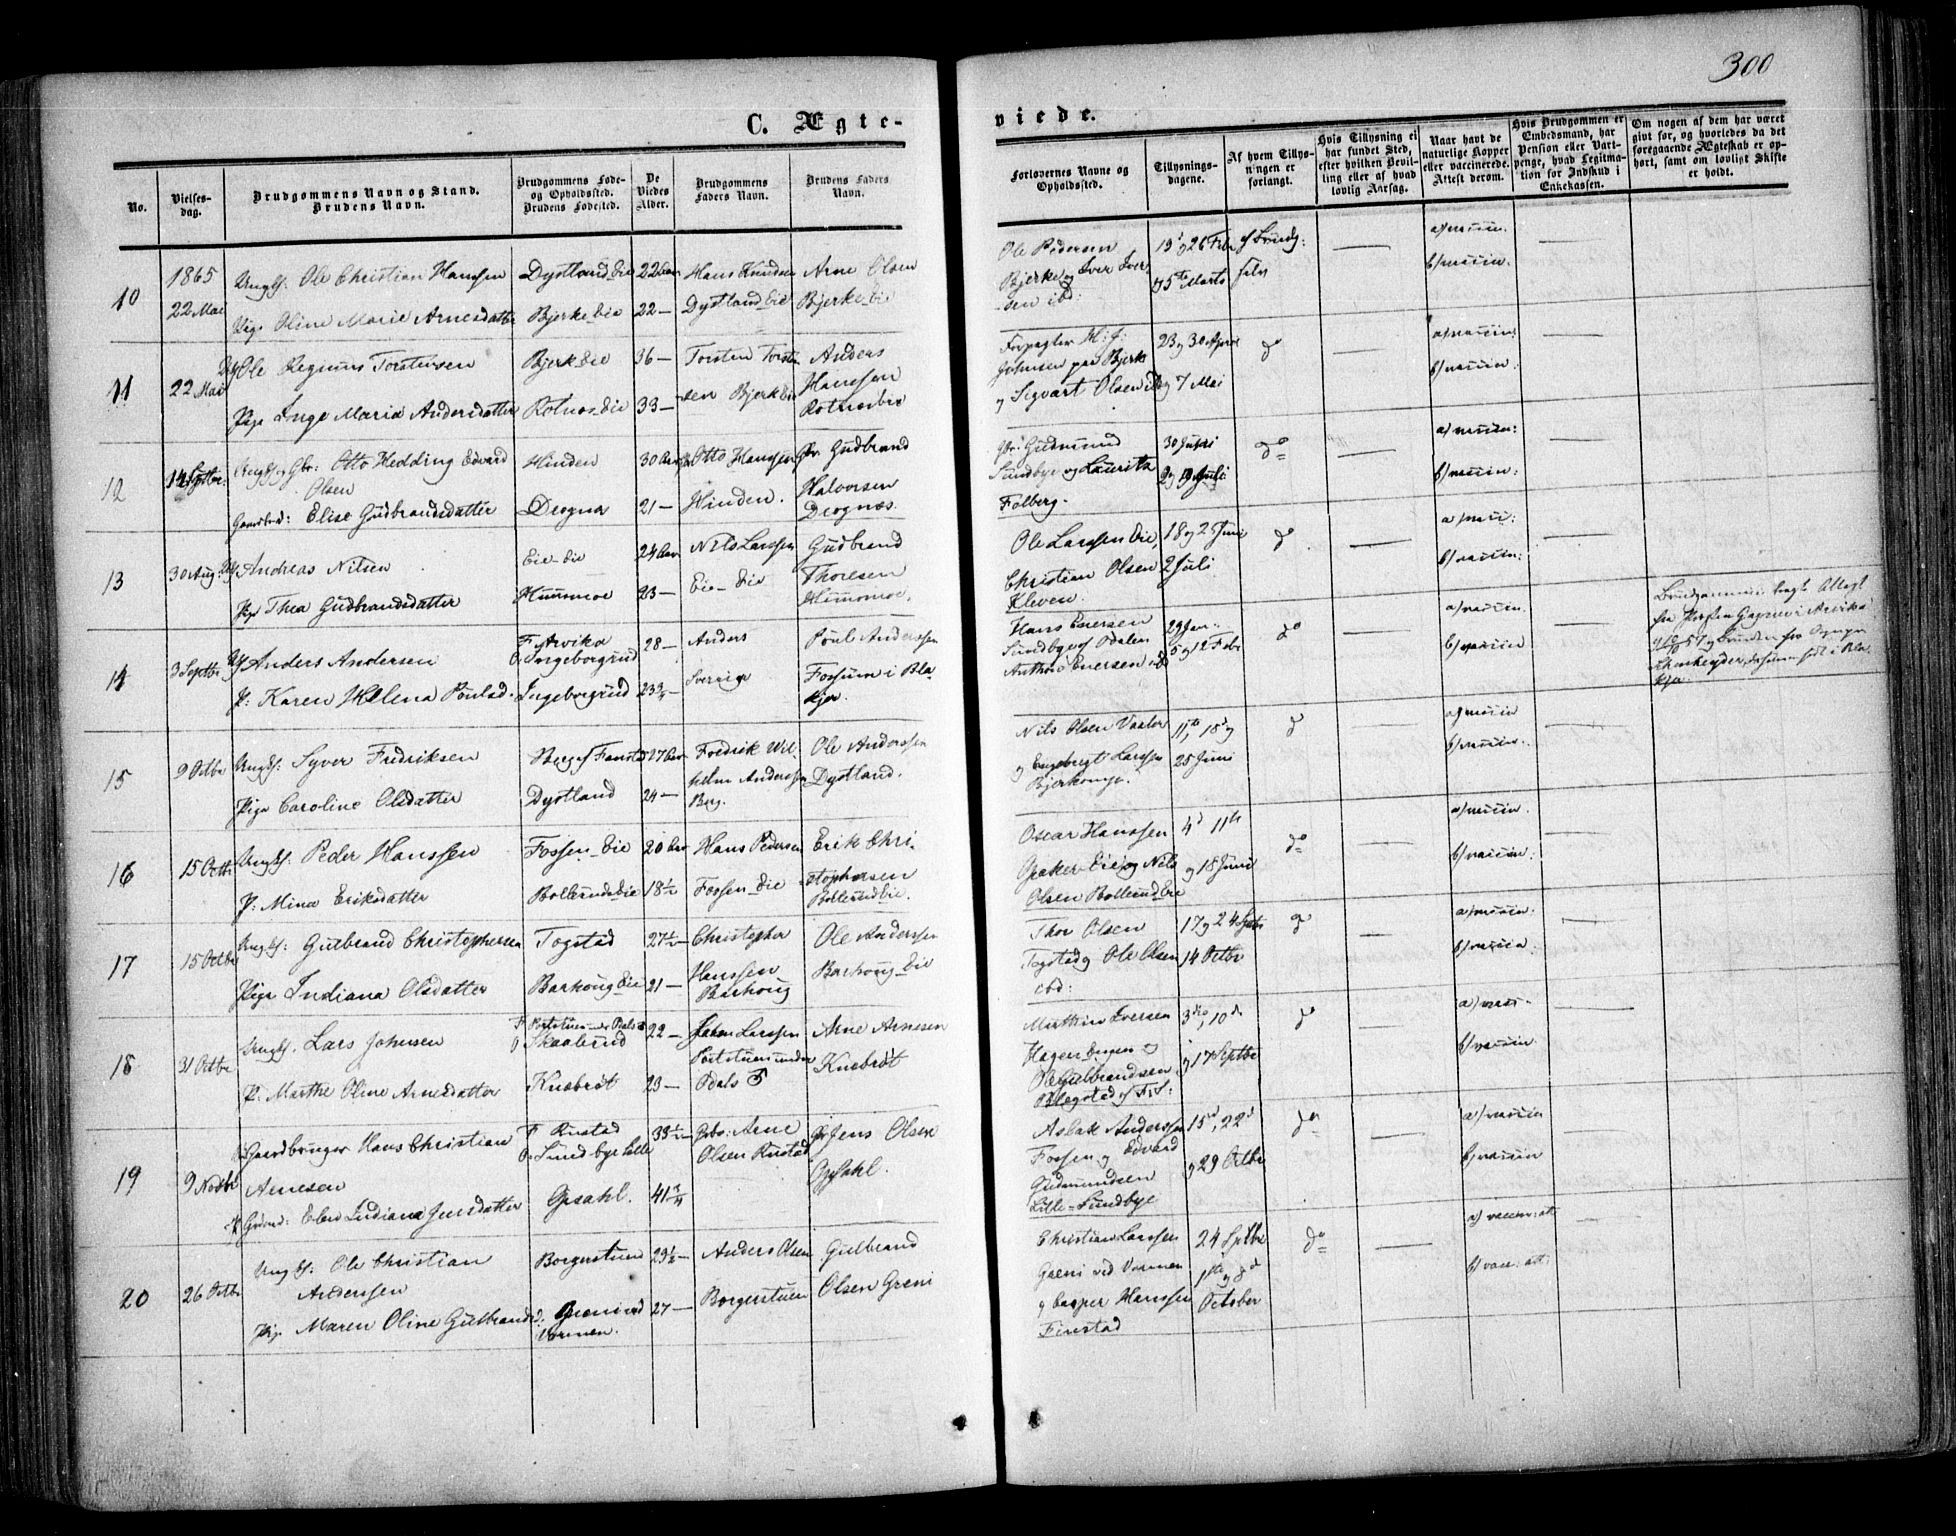 300
C. Ægte-
viede.
No.
Vielses-
dag.
Brudgommens Navn og Stand.
Brudens Navn.
Brudgommens Føde-
og Opholdssted.
Brudens Fødested.
De
Viedes
Alder.
Brudgommens
Faders Navn.
Brudens Faders
Navn.
Forlovernes Navne og
Opholdssted.
Tillysnings-
dagene.
Af hvem Tillys-
ningen er
forlangt.
Hvis Tillysning ei
har fundet Sted,
efter hvilken Bevil-
ling eller af hvad
lovlig Aarsag.
Naar havt de
naturlige Kopper
eller vaccinerede.
Attest derom.
Hvis Brudgommen er
Embedsmand, har
Pension eller Vart-
penge, hvad Legitima-
tion for Indskud i
Enkekassen.
Om nogen af dem har været
givt før, og hvorledes da det
foregaaende Ægteskab er op-
hørt, samt om lovligt Skifte
er holdt.
10
1865
22 Mai
Ungk. Ole Christian Hanssen
Pige Oline Marie Arnesdatter
Dystland Eie
Bjerke Eie
22 Aar
22 —
Hans Knudsen
Dystland Eie
Arne Olsen
Bjerke Eie
Ole Pedersen
Bjerke og Iver Iver
sen ibd:
19 og 26 Febr
og 5 Marts
af Brudg:
selv
a) vaccin.
b) vaccin.
11
22 Mai
Ole Torstensen
Pige Inge Maria Andersdatter
Bjerk Eie
Rotnes Eie
36 —
33 —
Torsten Torsten
sen Bjerk Eie
Anders
Hanssen
Rotnes Eie
Forpagter H: J:
Johnsen paa Bjerk
og Sigvart Olsen
23 og 30 April
og 7 Mai
do
a) vaccin:
b) vaccin:
12
14 Septbr.
Ungk og Gbr: Otto Hedding Edvard
Olsen
Gaardmd: Elise Gudbrandsdatter
Hinden
Drogna
30 Aar
21 —
Otto Hanssen
Hinden.
Gbr. Gudbrand
Halvorsen
Drognæs.
Gbr: Gudmund
Sundbye og Laurits
Folberg.
do
a) vaccin:
b) vaccin:
13
30 Aug:
Andreas Nilsen
Pige Thea Gudbrandsdatter
Eie-Eie
Hummoe
24 Aar
23 —
Nils Larssen
Eie-Eie
Gudbrand
Thoresen
Hummoe.
Ole Larssen Eie,
Christian Olsen
Kleven.
18 og 25 Juni
2 Juli
do
a) vacci:
b) vaccin:
14
3 Septbr
Anders Andersen
P: Karen Helena Poulsd.
F. Arvika
O. Ingeborgrud
Ingeborgrud
28 —
23 3/4 —
Anders
Sverrige
Poul Anderssen
Fossum i Bla
kjer.
Hans Enersen
Sundbye af Odalen
Anthon Enersen ibd
29 Jan.
5 og 12 Febr
do
a) vaccin.
b) vaccin
15
9 Octbr
Ungk: Syver Fredriksen
Pige Caroline Olsdatter
Berg af Fensta
Dystland
27 Aar
24 —
Fredrik Wil
helm Anderssen
Berg.
Ole Anderssen
Dystland.
Nils Olsen Vaaler
og Engebregt Larssen
11te, 18de og
25 Juni
do
a) vaccin
b) vaccin.
16
15 Octbr
Ungk. Peder Hanssen
P: Mina Eriksdatter
Fossen-Eie
Bollerud Eie
20 Aar
18 1/2 —
Hans Pedersen
Fossen-Eie
Erik Chri
stophersen
Bollerud Eie.
Oscar Hanssen
Eie og Nils
Olsen Bollerud Eie
4de 11te
og 18 Juni
do
a) vaccin.
b) vaccin:
17
15 Octbr
Ungk: Gulbrand Christophersen
Pige Indiana Olsdatter
Togstad
Barhoug Eie
27 1/2 —
21 —
Christopher
Hanssen
Barhoug
Ole Anderssen
Barhoug-Eie
Thor Olsen
Togstad og Ole Olsen
ibd:
17 og 24 Septbr
14 Octbr
do
a) vaccin.
b) vaccin.
18
31 Octbr
Ungk. Lars Johnsen
P: Marthe Oline Arnesdatter
O Skaalerud
Knabrøt
22 —
23 —
Johan Larssen
Odals
Arne Arnesen
Knabrøt
Mathias Iversen
Hagen og
Ole Gulbrandsen
3die, 10de
og 17 Septbr
do
a) vacc.
b) vaccin.
19
9 Novbr
Gaardbruger Hans Christian
Arnesen
P Gaardmd: Elen Indiana Jensdatter
F Rustad
O. Sundbye Lille
Opsahl.
33 1/2 —
41 3/4 —
Gbr: Arne
Olsen Rustad
Gbr Jens Olsen
Opsahl.
Aslak Anderssen
Fossen og Edvard
Gudmundsen
Lille-Sundbye
15de, 22de
og 29 Octbr
do
a) vaccin
b) vaccin
20
26 Octbr
Ungk: Ole Christian
Anderssen
Pige Maren Oline Gulbrandsd.
Borgerstuen
Græni ved
Vormen.
29 1/2 —
27 —
Anders Olsen
Borgerstuen
Gulbrand
Olsen Græni
Christian Larssen
Græni ved Vormen
og Casper Hanssen
Finstad
24 Septbr
1ste og 8de
October
do
a) vaccin: att
b) vacc: att: